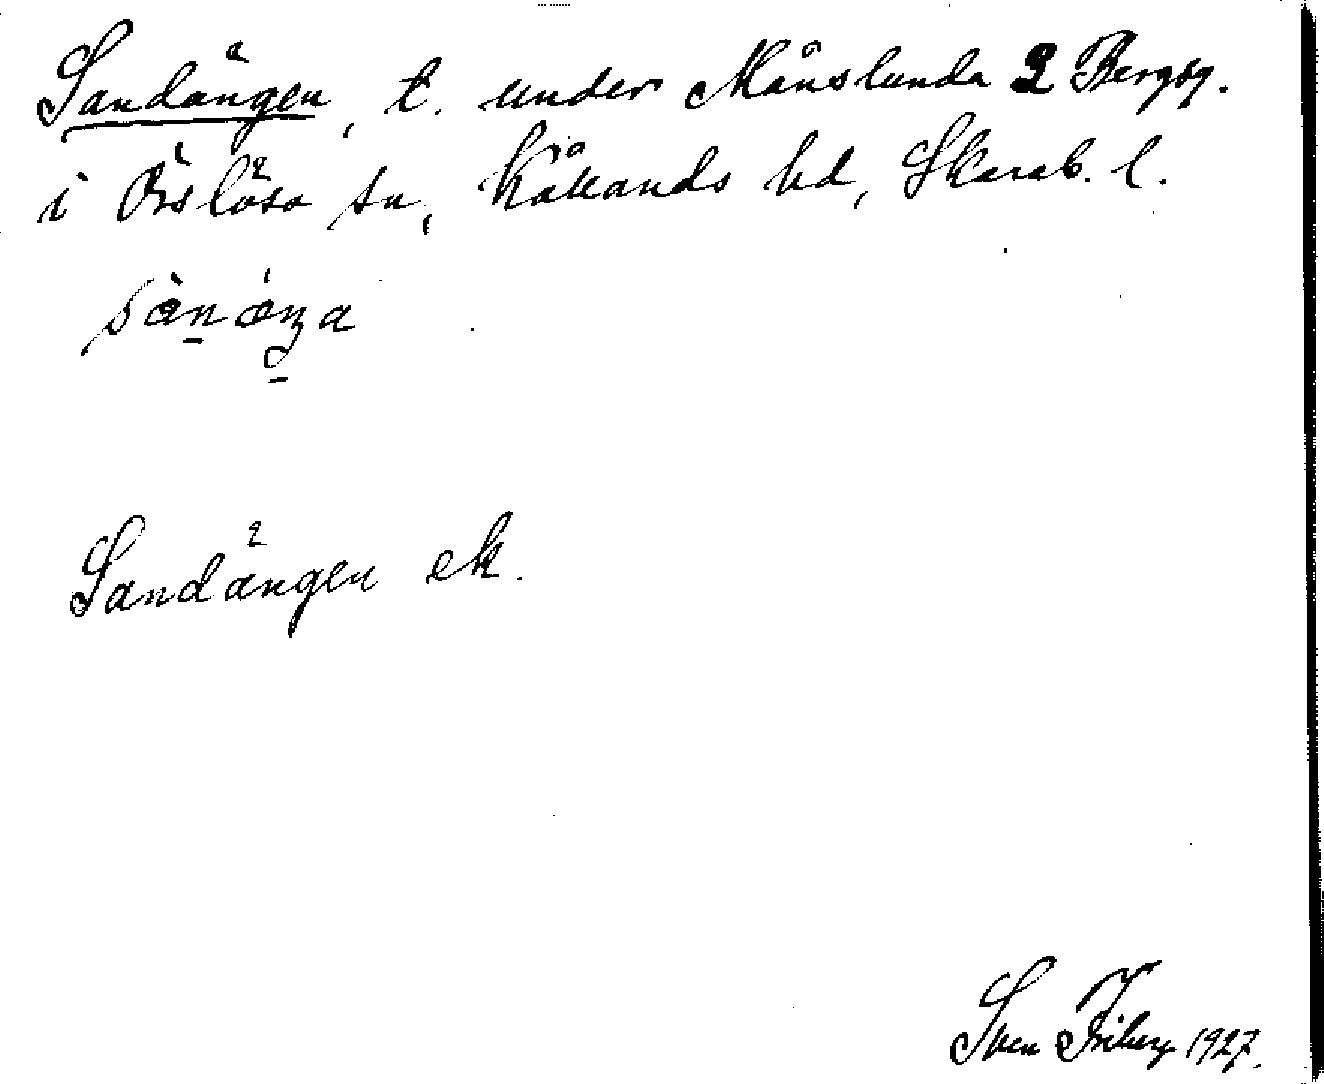 Sandängen, t. under Månslunda 2 Bergsg.
i Örslösa sn, Kålands hd, Skarab. l.
Sandängen ek.
Sven Friberg 1927.